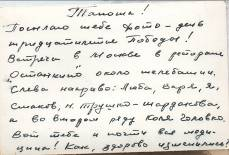 Танюша!
Посылаю тебе фото – день
тридцатилетие Победы!
Встреча в Москве в ресторане
"Останкино" около телебашни.
Слева направо: Люба, Варя, Я,
Смаков, Н. Трушко-Шарданова,
а во втором ряду Коля Головко.
Вот тебе и почти вся меди-
цина! Как, здорово изменились?